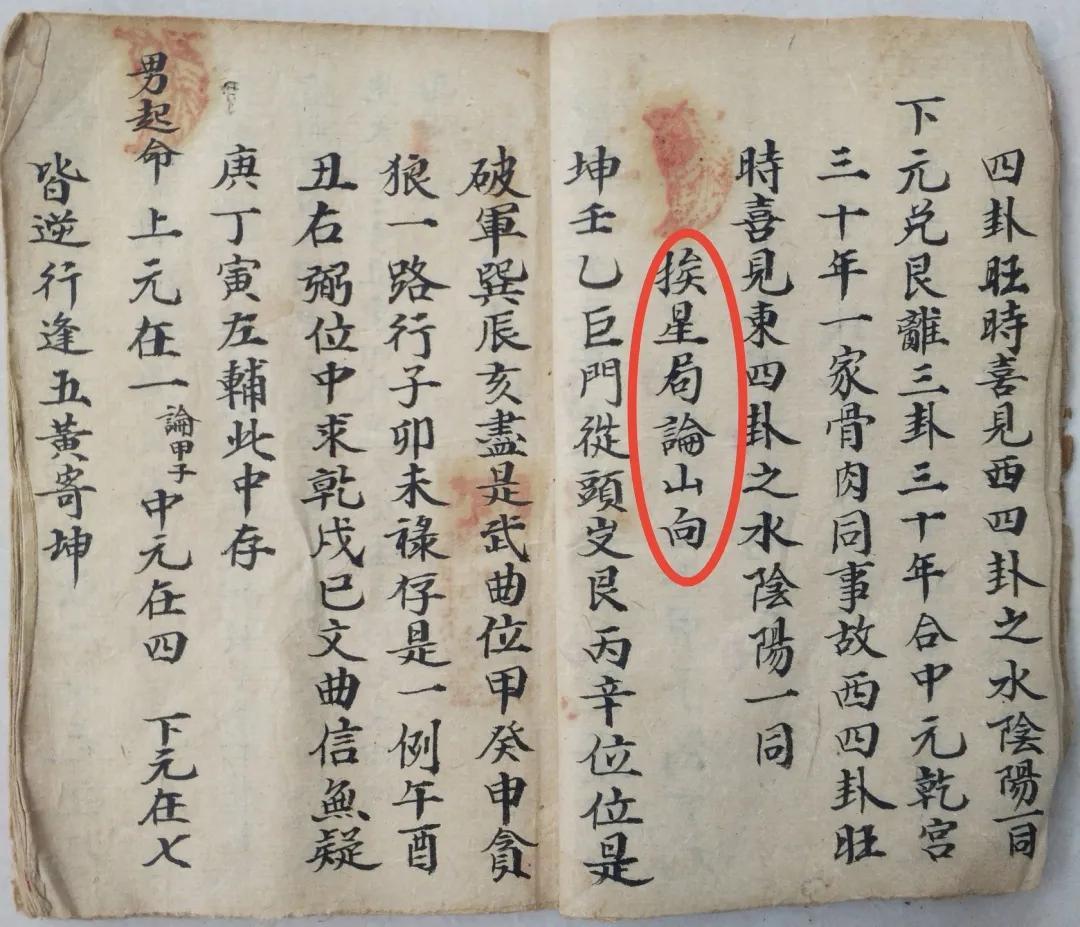 四卦旺時喜見西四卦之水陰陽一同
下元兑艮離三卦三十年合中元乾宮
三十年一家骨肉同事故西四卦旺
時喜見東四卦之水陰陽一同
挨星局論山向
坤壬乙巨門從頭岁艮丙辛位位是
破軍巽辰亥盡是武曲位甲癸申貪
狼一路行子卯未祿存是一例午酉
丑右弼位中求乾戌巳文曲信無疑
庚丁寅左輔此中存
男起命 上元在一 論甲子 中元在四 下元在七
皆逆行逢五黄寄坤